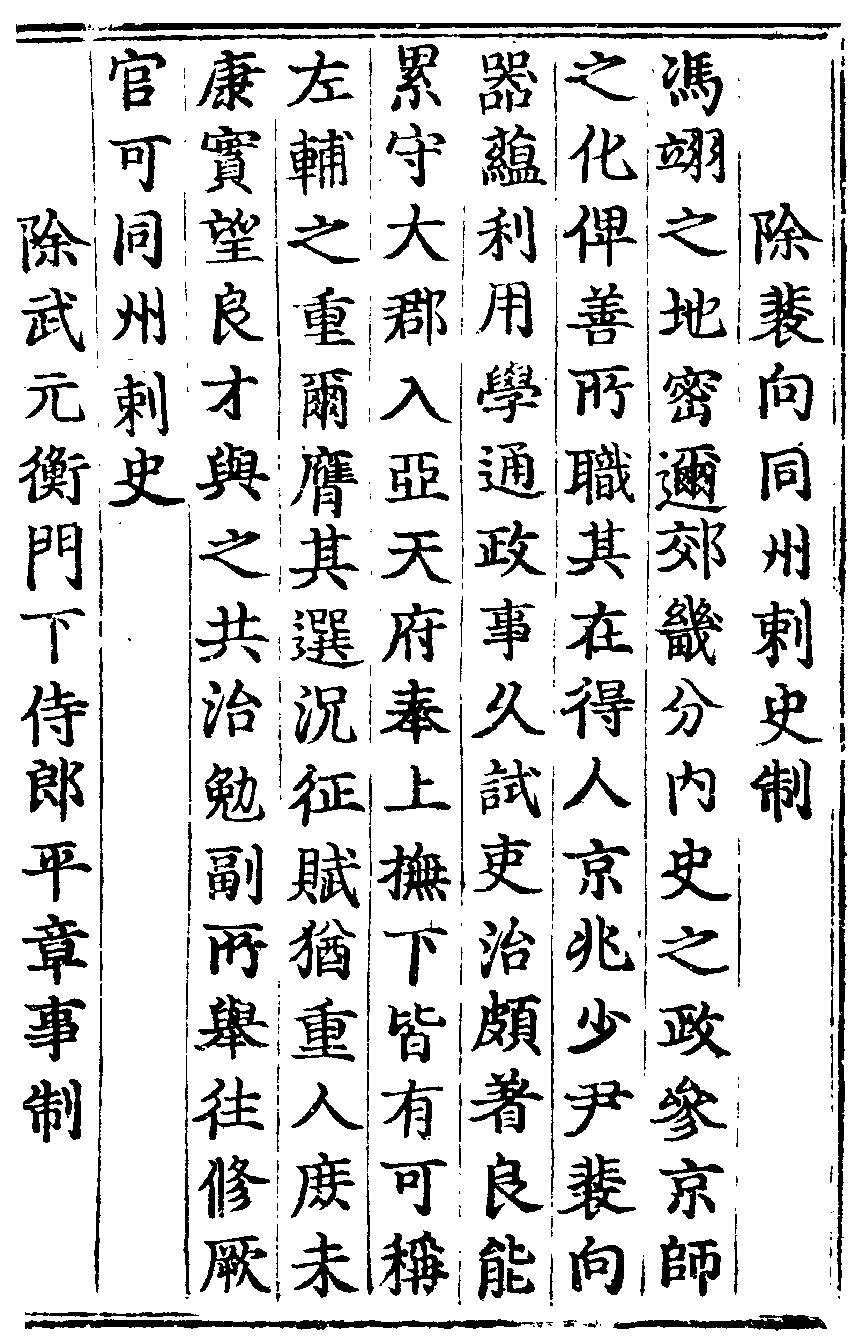 除裴向同州刺史制
馮翊之地密邇郊畿分内史之政參京師
之化俾善所職其在得人京兆少尹裴向
器蘊利用學通政事久試吏治頗著良能
累守大郡入亞天府奉上撫下皆有可稱
左輔之重爾膺其選況征賦猶重人庶未
康實望良才與之共治勉副所舉往修厥
官可同州刺史
除武元衡門下侍郎平章事制